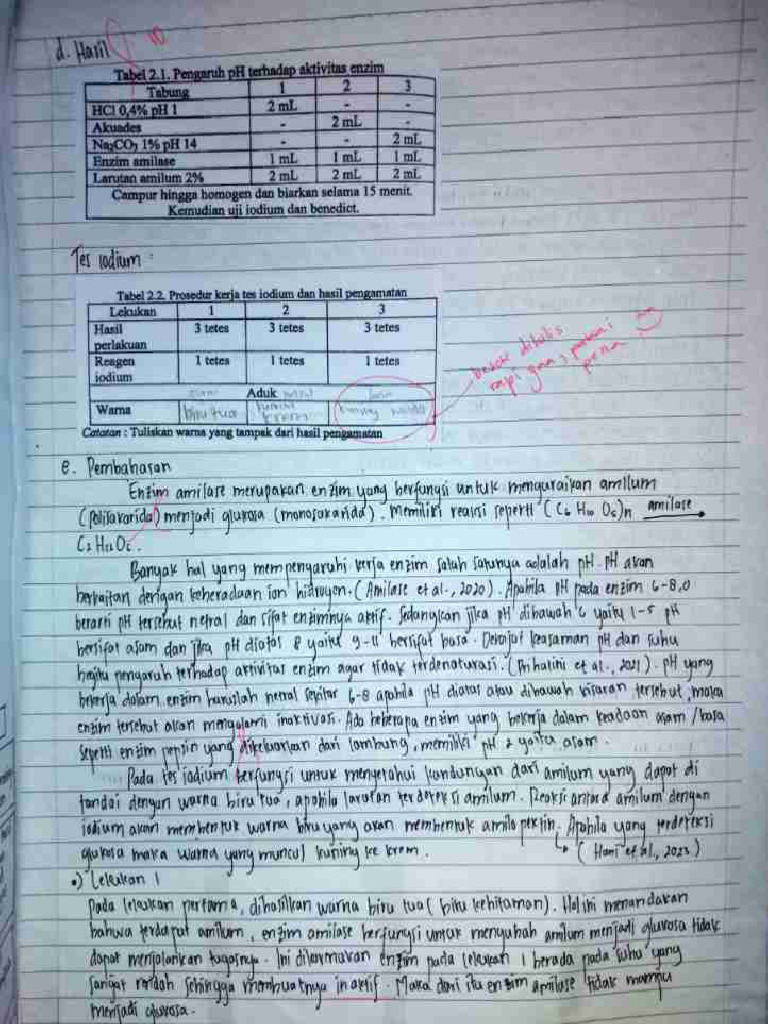 d. Hasil
10
Tabel 2.1. Pengaruh pH terhadap aktivitas enzim
Tabung 1 2 3
HCl 0,4% pH 1 2 mL - -
Akuades - 2 mL -
Na₂CO₃ 1% pH 14 - - 2 mL
Enzim amilase 1 mL 1 mL 1 mL
Larutan amilum 2% 2 mL 2 mL 2 mL
Campur hingga homogen dan biarkan selama 15 menit.
Kemudian uji iodium dan benedict.
Tes iodium :
Tabel 2.2. Prosedur kerja tes iodium dan hasil pengamatan
Lekukan 1 2 3
Hasil perlakuan 3 tetes 3 tetes 3 tetes
Reagen iodium 1 tetes 1 tetes 1 tetes
Aduk
Warna biru tua kuning
besok ditulis
rapi yaa, pakai
pena
Catatan : Tuliskan warna yang tampak dari hasil pengamatan
e. Pembahasan
Enzim amilase merupakan enzim yang berfungsi untuk menguraikan amilum
(polisakarida) menjadi glukosa (monosakarida). Memiliki reaksi seperti (C6 H10 O5)n amilase
C2 H12 O6.
Banyak hal yang mempengaruhi kerja enzim salah satunya adalah pH. pH akan
berkaitan dengan keberadaan ion hidrogen. (Amilase et al., 2020). Apabila pH pada enzim 6-8,0
berarti pH tersebut netral dan sifat enzimnya aktif. Sedangkan jika pH dibawah 6 yaitu 1-5 pH
bersifat asam dan jika pH diatas 8 yaitu 9-11 bersifat basa. Derajat keasaman pH dan suhu
begitu pengaruh terhadap aktivitas enzim agar tidak terdenaturasi. (Prihatini et al., 2021). pH yang
bekerja dalam enzim haruslah netral sekitar 6-8 apabila pH diatas atau dibawah kisaran tersebut, maka
enzim tersebut akan mengalami inaktivasi. Ada beberapa enzim yang bekerja dalam keadaan asam/basa
seperti enzim pepsin yang dikeluarkan dari lambung, memiliki pH 2 yaitu asam.
Pada tes iodium berfungsi untuk mengetahui kandungan dari amilum yang dapat di
tandai dengan warna biru tua, apabila larutan terdeteksi amilum. Reaksi antara amilum dengan
iodium akan membentuk warna biru yang akan membentuk amilo pektin. Apabila yang terdeteksi
glukosa maka warna yang muncul kuning ke krem. (Hani et al., 2023)
•) Lekukan 1
Pada lekukan pertama, dihasilkan warna biru tua (biru kehitaman). Hal ini menandakan
bahwa terdapat amilum, enzim amilase berfungsi untuk mengubah amilum menjadi glukosa tidak
dapat menjalankan tugasnya. Ini dikarenakan enzim pada lekukan 1 berada pada suhu yang
sangat rendah sehingga membuatnya inaktif. Maka dari itu enzim amilase tidak mampu
menjadi glukosa.